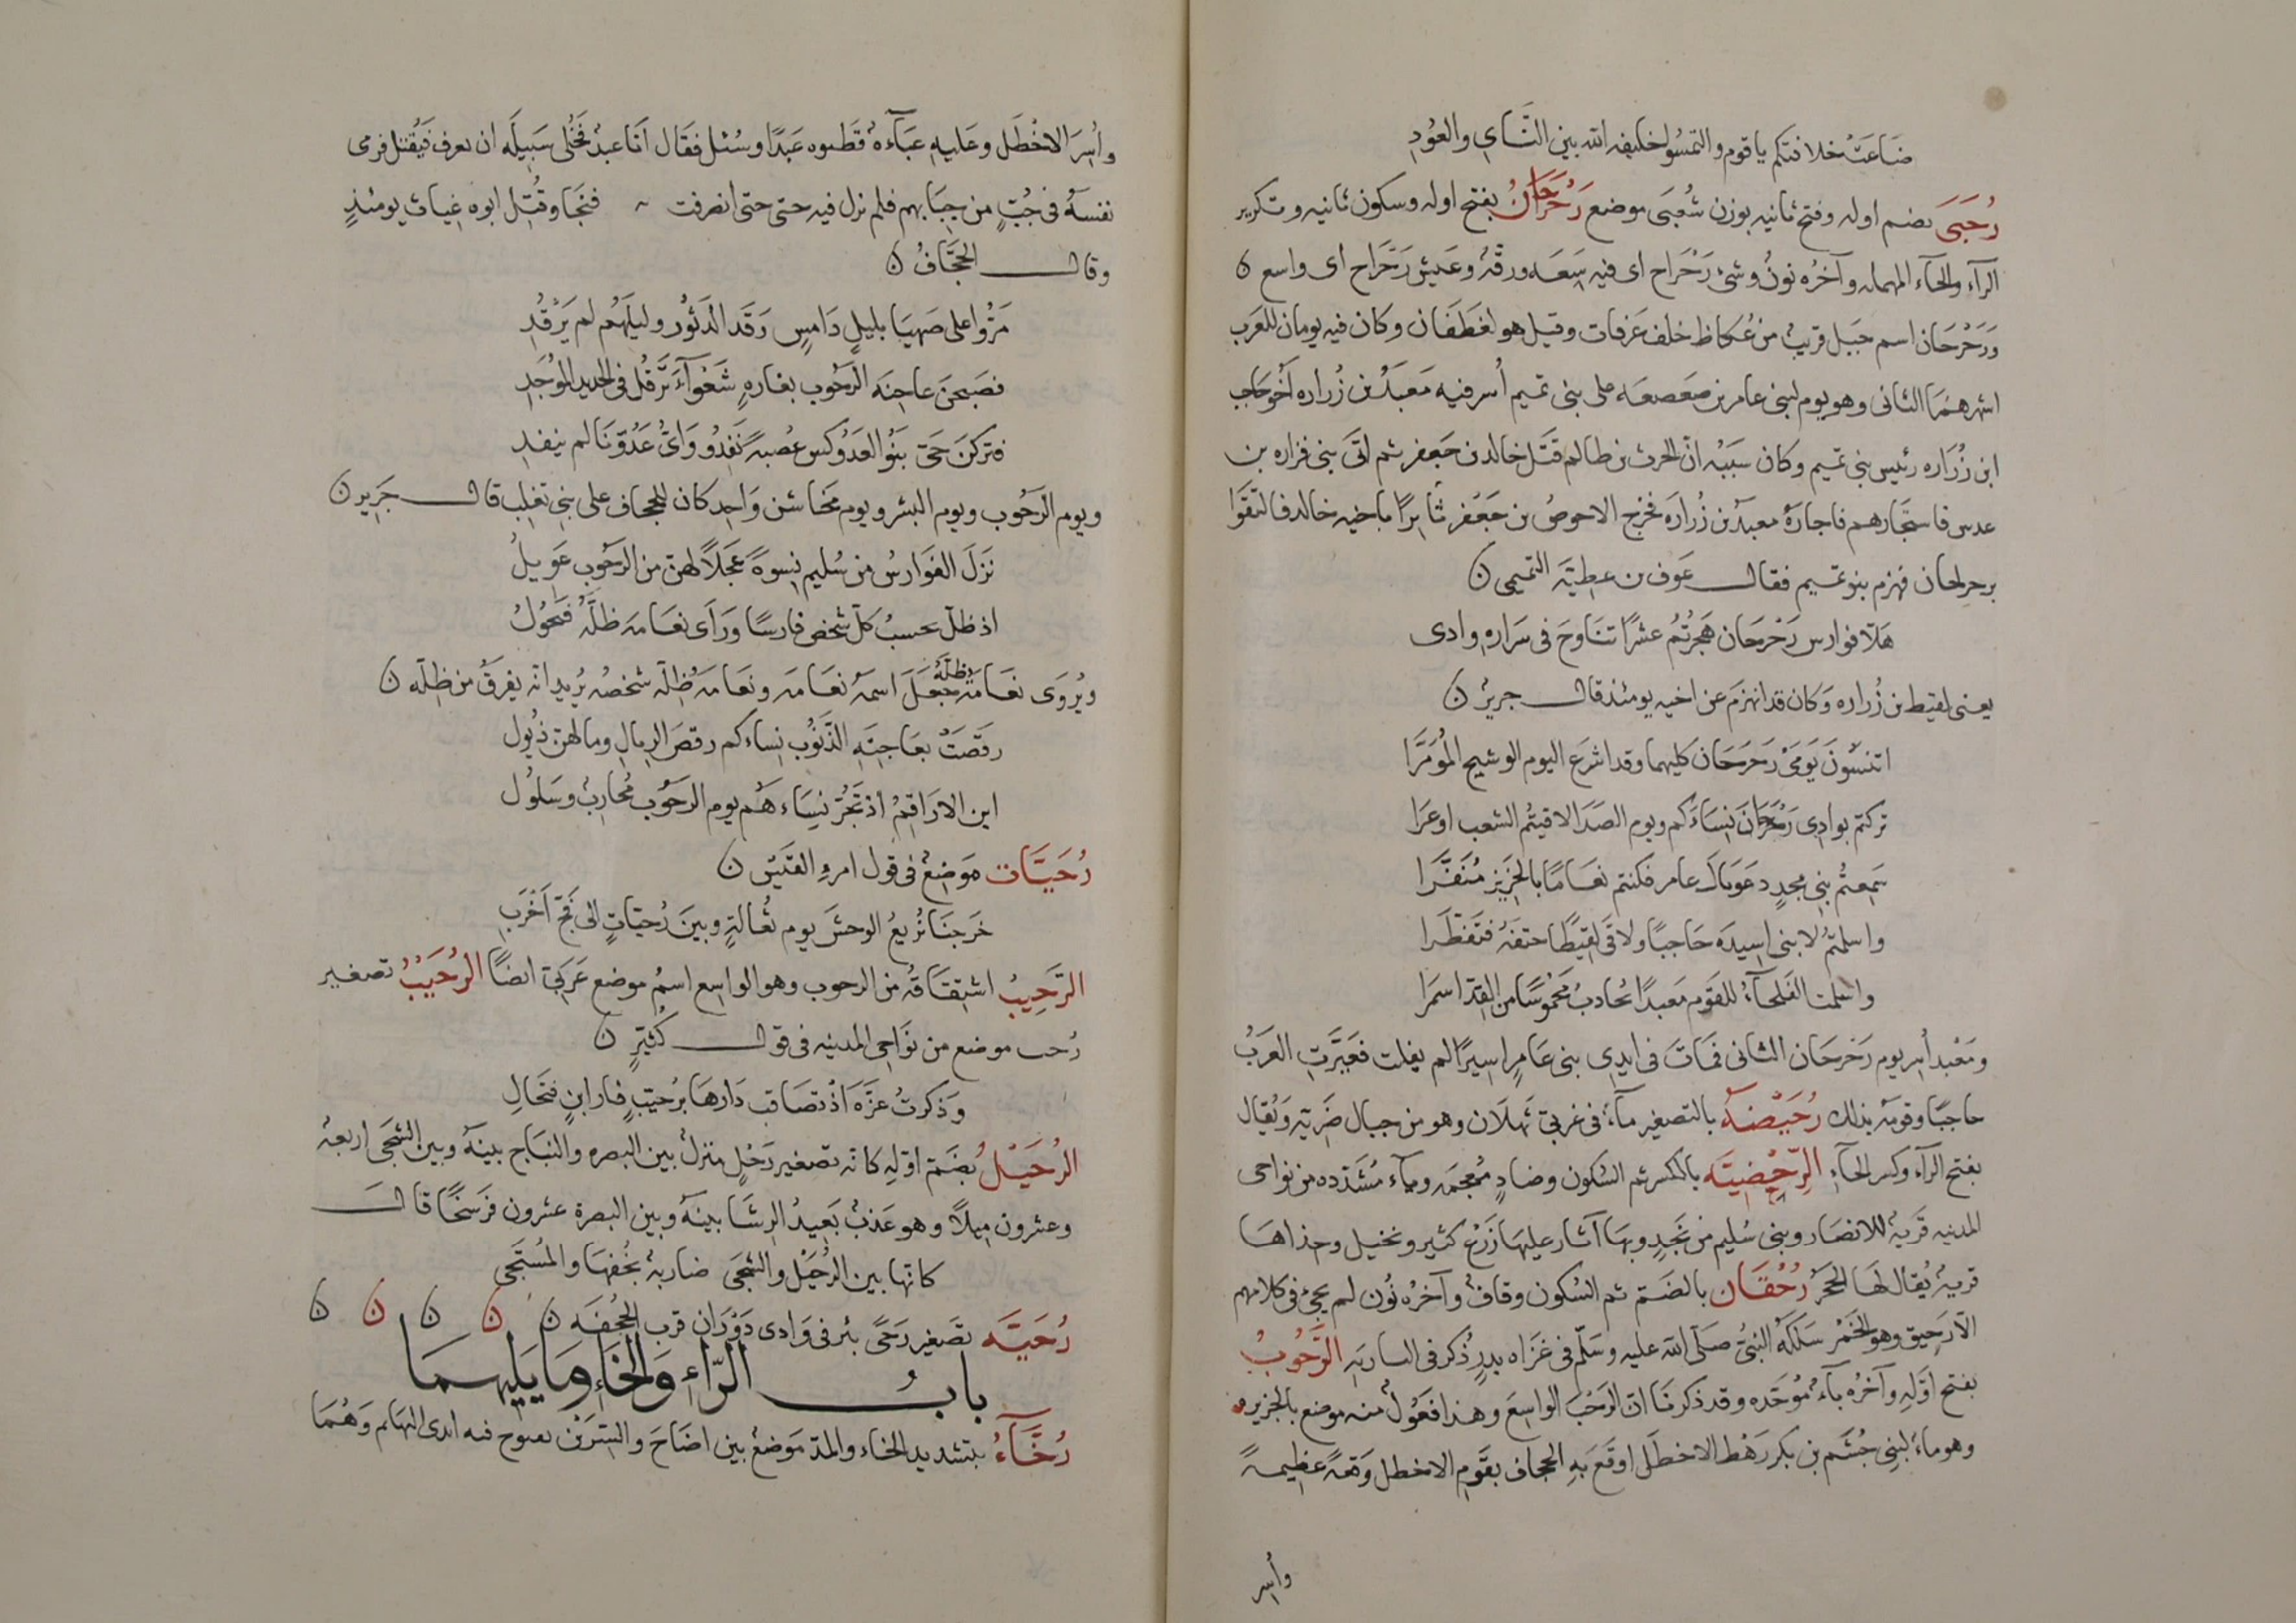 ضاعت خلافتكم يا قوم والتمسوا خليفة الله بين الناي والعود
رُحَبَى بضم اوله وفتح ثانيه بوزن شُعَبَى موضع رَحْرَحَانُ بفتح اوله وسكون ثانيه وتكرير
الرآء والحآء المهمله وآخرُه نونٌ وشئ رَحْرَاح اى فيه سَعَه ورقّة وعيش رَحْرَاح اى واسع ن
ورَحْرَحَان اسم جبَل قريب من عُكاظ خلف عَرَفات وقيل هو لغَطَفَان وكان فيه يومان للعَرَب
اشهرهُمَا الثانى وهو يوم لبنى عامر بن صَعصعَه على بنى تميم أُسر فيه مَعبَدُ بن زُراره اخو حَاجب
ابن زُرَاره رئيس بنى تميم وكان سَبَبُه انّ الحرث بن ظالم قَتَل خالد بن جَعفر ثم اتَى بنى فزاره بن
عدس فاستجَارهم فاجارَهُ معبدُ بن زُرارَه فخرج الاحوصُ بن جَعْفر ثَائِرًا باخيه خالد فالتَقَوا
برحرحان فهزم بنو تميم فقال عَوف بن عطيّة التميمى ن
هَلّا فوارس رَحْرحَان هجرتُمُ عشرًا تنَاوحَ فى سَرَاره وادى
يعنى لقيط بن زُراره وَكان قد انهزَم عن اخيه يومئذ قال جريرٌ ن
اتنسَونَ يَومَىْ رَحرَحَان كليهما وقد اشرَع اليوم الوشيج المُؤمَرَّا
تركتم بوادى رَحرَحَانَ نِسَاءَكم ويوم الصَدَا لاقيتُم الشعب اوعَرَا
سَمِعتُم بنى مجدٍ دعَوا يال عامر فكنتم نعَامًا بالحَزِيز مُنَفَّرَا
واسلمتُم لابنى اسيدَه حَاجبًا ولاقَى لقيطًا حتفهُ فتَقَطّرَا
واسلمت القلحآءُ للقَوم مَعبدًا يُجَادبُ مَخْموسًا من القِدّ اسمَرا
ومَعْبد أُسِر يوم رَحرَحَان الثانى فمَاتَ فى ايدى بنى عَامرٍ اسيرًا لم يفلت فعَيَّرَتِ العَرَبُ
حاجبًا وقومَه بذلك رُحَيْضَةُ بالتصغير مآءٌ فى غربى ثَهلَان وهو من جبال ضَرِيّه وَيُقال
بفتح الرآء وكسر الحآءِ الرِّحْضِيّة بالكسر ثم السُكون وضادٍ مُعجَمه ويآء مُشَدّده من نواحى
المدينه قَريةٌ للانصَار وبنى سُليم من نَجدٍ وبهَا آثار عليهَا زَرْع كثير ونخيل وحذاهَا
قريةٌ يُقال لهَا الحَجَرُ رُحْقَان بالضَمّ ثم السُكون وقافٌ وآخرُه نُون لم يجئ فى كلامهم
الّا رَحِيق وهو الخَمْر سَلَكَهُ النبىّ صلّى الله عليه وسَلّم فى غَزَاه بدرٍ ذُكر فى السارية الرَّحُوبُ
بفتح اوّلهِ وآخرُه بآءٌ مُوَحّده وقد ذكرنَا انّ الرَحْبَ الواسِعَ وهذا فَعُولٌ منه موضع بالجزيره
وهو ماءٌ لبنِى جُشَم بن بكر رَهْط الاخطَل اوقَعَ بِهِ الجحاف بقَوم الاخطل وَقعَةً عَظِيمةً
وأُسِر
وأُسِرَ الاخْطَل وعَليهِ عَبَاءةٌ فظنوه عَبْدًا وسُئل فقَال أنَا عبدٌ فخُلّى سَبِيلَه ان يعرف فَيُقتل فرمى
نفسهُ فى جُبٍّ من جِبَابهم فلم نزل فيه حتى حتى انصرفت فنجَا وقُتِل ابوه غِياث يومئذٍ
وقال الجحّافُ ن
مَرُّوا على صَهيَا بليلٍ دَامِسٍ رَقَد الدَثُور وليلَهُم لم يَرْقُدِ
فصَبَحنَ عاجنَه الرَحُوب بغارهٍ شَعْوآءَ تَرْفُل فى الحديد المُوجَدِ
فتركنَ حَىّ بَنُو الفَدَوكس عُصبةً نَفِدُوا وَاىُّ عَدُوّنَا لم ينفدِ
ويوم الرَحُوب ويوم البشر ويوم مَخَاشن وَاحِد كان للجحاف على بنِى تغلِب قال جَرير ن
نَزلَ الفَوارسُ من سُليم نِسوةً عَجَلًا لهن من الرَحُوب عَويلُ
اذ ظلّ يحسبُ كلّ شخص فارسًا ورَأى نعَامة ظلّهُ فيَحُولُ
ويُروَى نعَامَةُ ظلّهُ جعَلَ اسمهُ نعَامه ونعَامَهُ ظلّه شخصُه يُريد انّه يفرَقُ من ظلّه ن
رقَصَتْ بعَاجِنَهِ الرَّحُوب نِساءكم رقصَ الرِيَالِ وما لهنّ ذُيول
اين الارَاقمُ اذ تَجُرّ نِسَاءهُم يوم الرَحُوب مُحَاربٌ وسَلُولُ
رُحَيَّات مَوضِعٌ فى قول امرءِ القَيس ن
خَرجنَا نُريغُ الوحشَ يوم ثُعَالةٍ وبينَ رُحيّاتٍ الى فَجّ اَخْرَبِ
الرَّحِيبُ اشتِقَاقُه من الرحوب وهو الواسع اسمُ موضع عَربى ايضًا الرُّحَيْبُ تصغير
رُحب موضع من نَوَاحى المدينه فى قول كُثَيّرٍ ن
وَذكرتُ عَزّهَ اذ تصَاقب دَارهَا برُحَيّبٍ فارابنٍ فنخَالِ
الرُحَيْلُ بضَمّ اوّلِه كانّه تصغير رَحْلٍ منزلٌ بين البصره والنبَاج بينهُ وبين الشجَى اربعة
وعشرون مِيلًا وهو عَذبٌ بَعِيدُ الرِشَا بينهُ وبين البصرة عشرون فرَسَخًا قال
كانّها بين الرُحَيْل والشجَى ضاربةٌ بخُفهَا والمُسْتَجى
رُحَيَّه تصَغير رَحًى بئر فى وَادى دَوْرَان قرب الجُحفَه ن ن ن ن ن
بابُ الرّاءِ وَالخَاءِ وَمَا يَليهمَا
رُخَّآءُ بتشديد الخاء والمدّ مَوضعٌ بين اضَاخَ والسِرّيْن تسوخ فيه ايدى البَهَائم وَهُمَا